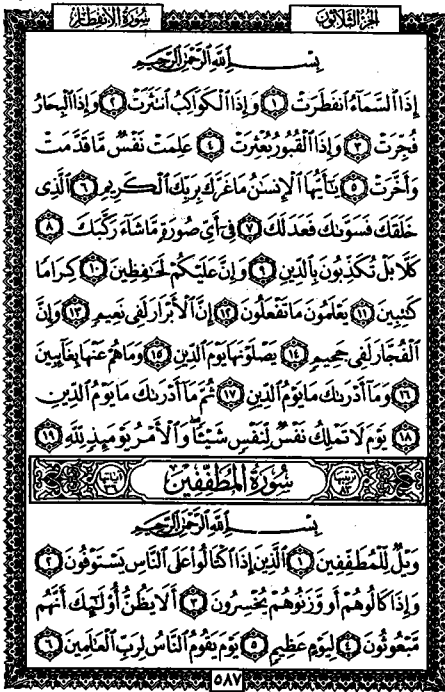 سُورَةُ الانفِطَارِ الجُزءُ الثَّلَاثُونَ
بِسْمِ ٱللَّهِ ٱلرَّحْمَٰنِ ٱلرَّحِيمِ
إِذَا ٱلسَّمَآءُ ٱنفَطَرَتْ ١ وَإِذَا ٱلْكَوَاكِبُ ٱنتَثَرَتْ ٢ وَإِذَا ٱلْبِحَارُ
فُجِّرَتْ ٣ وَإِذَا ٱلْقُبُورُ بُعْثِرَتْ ٤ عَلِمَتْ نَفْسٌ مَّا قَدَّمَتْ
وَأَخَّرَتْ ٥ يَٰٓأَيُّهَا ٱلْإِنسَٰنُ مَا غَرَّكَ بِرَبِّكَ ٱلْكَرِيمِ ٦ ٱلَّذِى
خَلَقَكَ فَسَوَّىٰكَ فَعَدَلَكَ ٧ فِىٓ أَىِّ صُورَةٍ مَّا شَآءَ رَكَّبَكَ ٨
كَلَّا بَلْ تُكَذِّبُونَ بِٱلدِّينِ ٩ وَإِنَّ عَلَيْكُمْ لَحَٰفِظِينَ ١٠ كِرَامًا
كَٰتِبِينَ ١١ يَعْلَمُونَ مَا تَفْعَلُونَ ١٢ إِنَّ ٱلْأَبْرَارَ لَفِى نَعِيمٍ ١٣ وَإِنَّ
ٱلْفُجَّارَ لَفِى جَحِيمٍ ١٤ يَصْلَوْنَهَا يَوْمَ ٱلدِّينِ ١٥ وَمَا هُمْ عَنْهَا بِغَآئِبِينَ
١٦ وَمَآ أَدْرَىٰكَ مَا يَوْمُ ٱلدِّينِ ١٧ ثُمَّ مَآ أَدْرَىٰكَ مَا يَوْمُ ٱلدِّينِ
١٨ يَوْمَ لَا تَمْلِكُ نَفْسٌ لِّنَفْسٍ شَيْـًٔا ۖ وَٱلْأَمْرُ يَوْمَئِذٍ لِّلَّهِ ١٩
سُورَةُ المُطَفِّفِينَ
بِسْمِ ٱللَّهِ ٱلرَّحْمَٰنِ ٱلرَّحِيمِ
وَيْلٌ لِّلْمُطَفِّفِينَ ١ ٱلَّذِينَ إِذَا ٱكْتَالُوا۟ عَلَى ٱلنَّاسِ يَسْتَوْفُونَ ٢
وَإِذَا كَالُوهُمْ أَو وَّزَنُوهُمْ يُخْسِرُونَ ٣ أَلَا يَظُنُّ أُو۟لَٰٓئِكَ أَنَّهُم
مَّبْعُوثُونَ ٤ لِيَوْمٍ عَظِيمٍ ٥ يَوْمَ يَقُومُ ٱلنَّاسُ لِرَبِّ ٱلْعَٰلَمِينَ ٦
٥٨٧